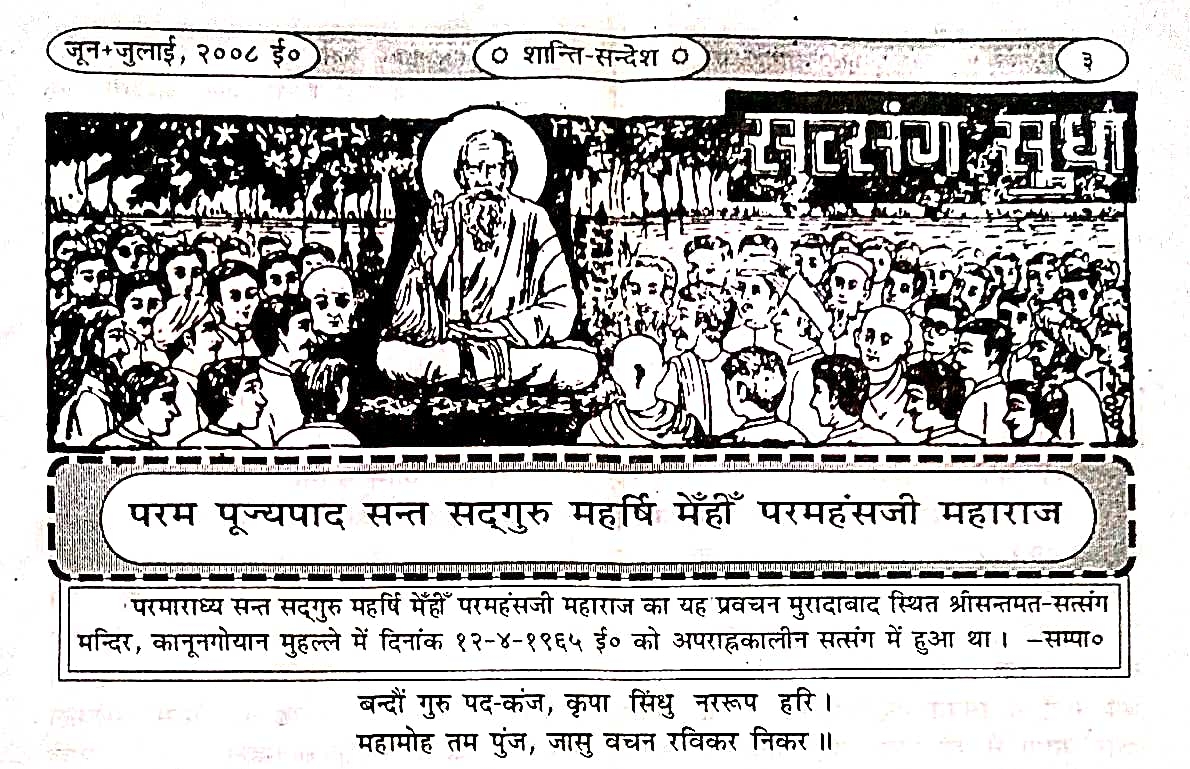 जून+जुलाई, २००८ ई०
शान्ति-सन्देश
३
सत्संग सुधा
परम पूज्यपाद सन्त सद्‌गुरु महर्षि मेँहीँ परमहंसजी महाराज
परमाराध्य सन्त सद्‌गुरु महर्षि मेँहीँ परमहंसजी महाराज का यह प्रवचन मुरादाबाद स्थित श्रीसन्तमत-सत्संग
मन्दिर, कानूनगोयान मुहल्ले में दिनांक १२-४-१९६५ ई० को अपराह्नकालीन सत्संग में हुआ था । –सम्पा०
बन्दौं गुरु पद-कंज, कृपा सिंधु नररूप हरि ।
महामोह तम पुंज, जासु वचन रविकर निकर ॥